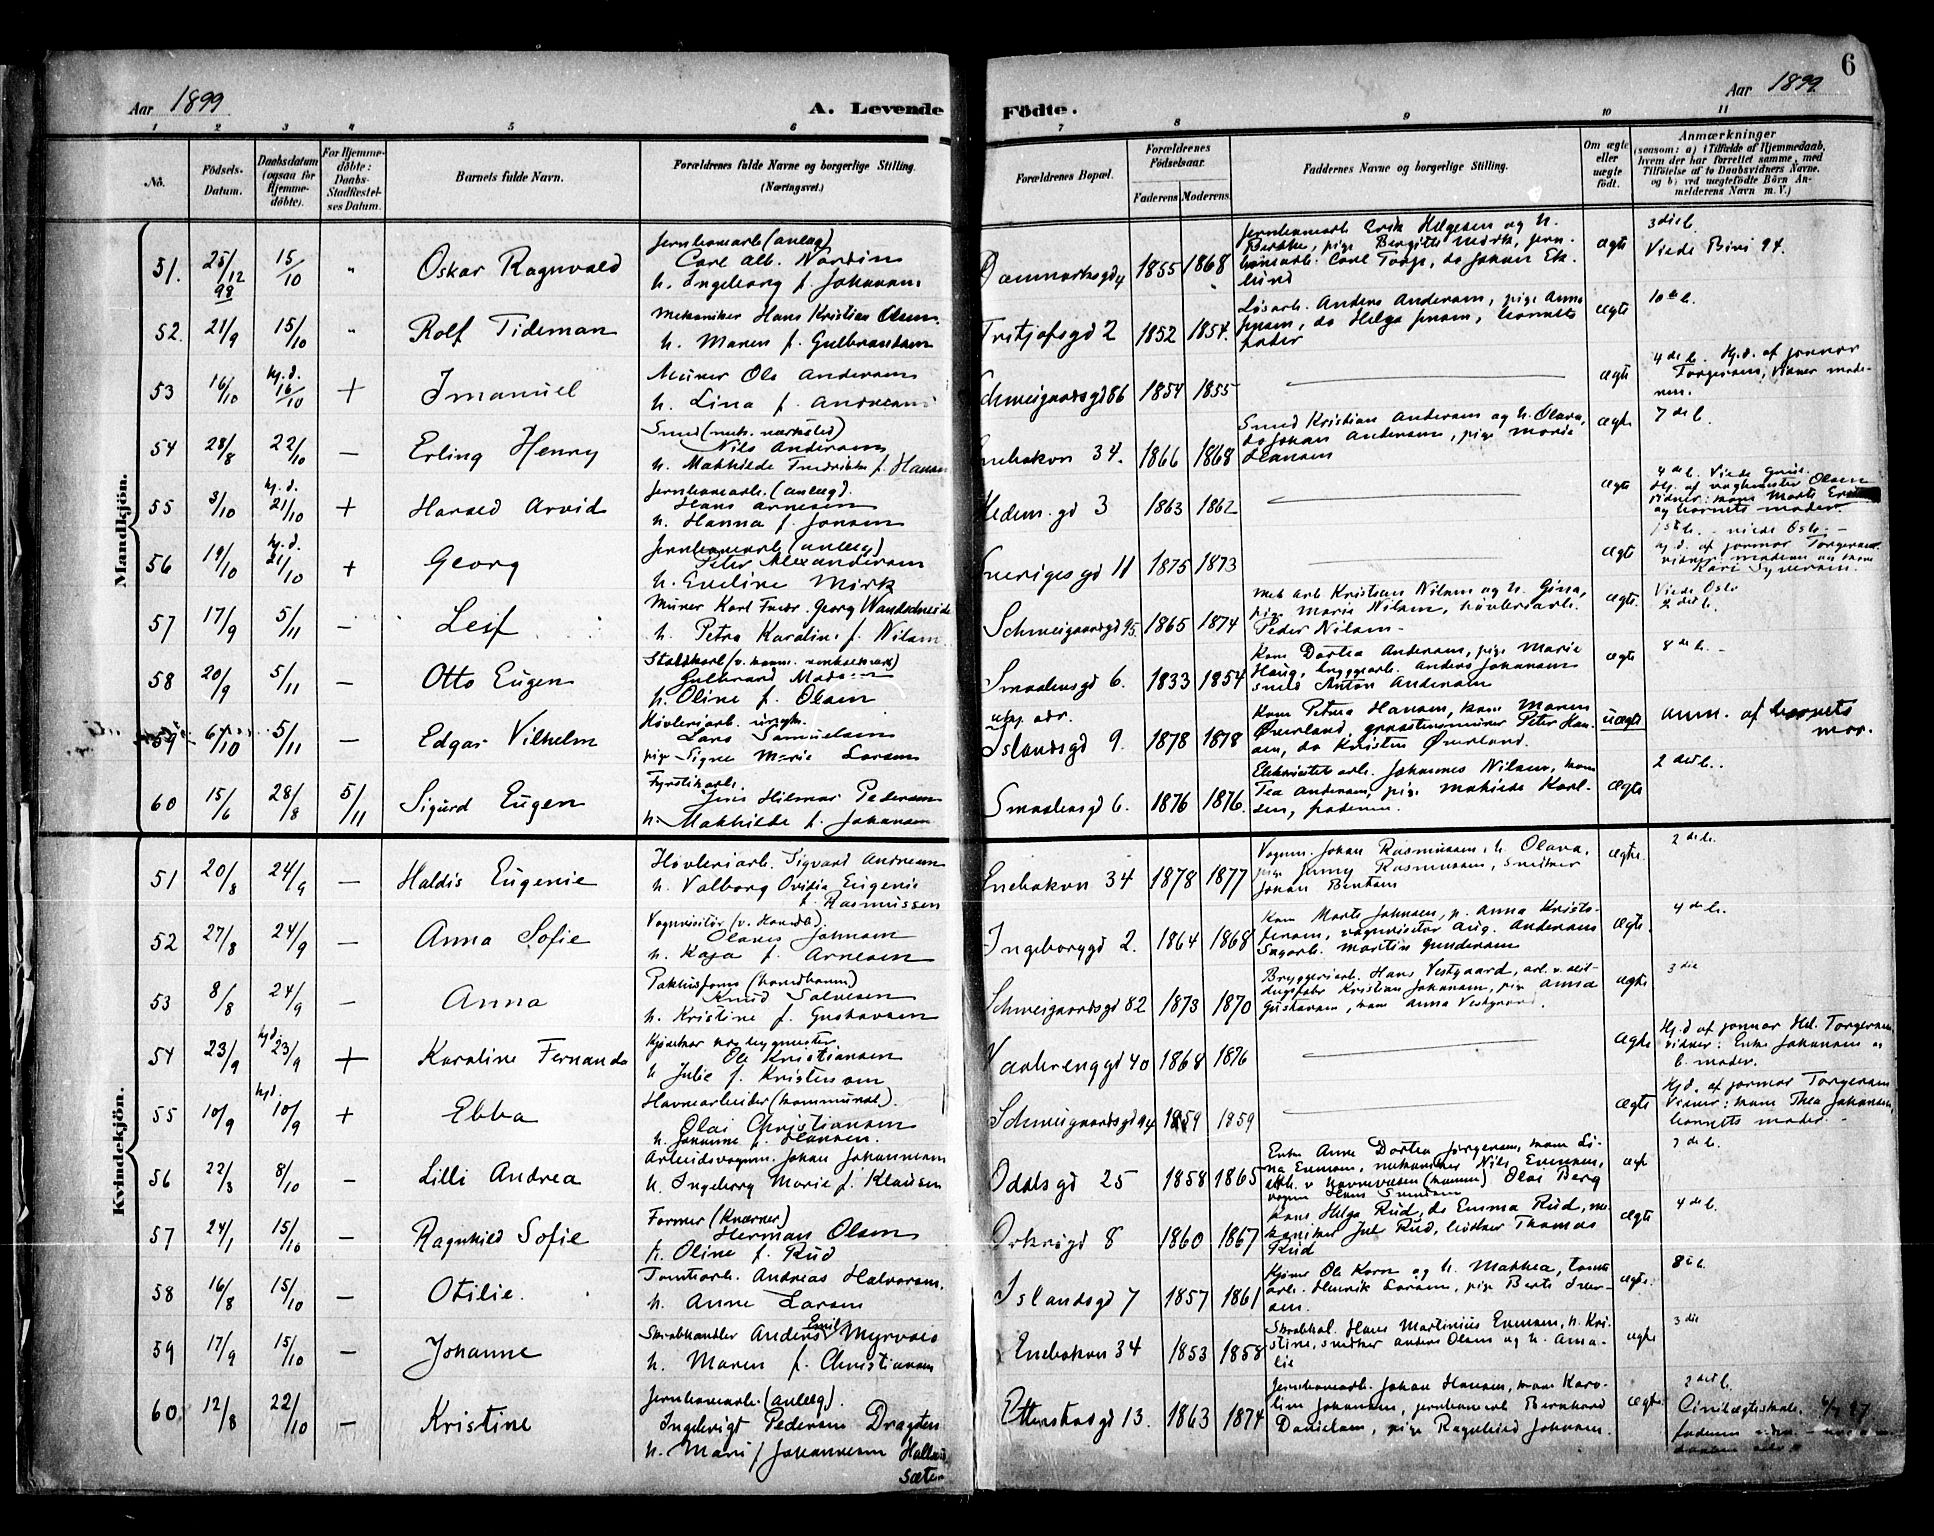 Aar 1899
A. Levende
1 2 3 4 5 6
No.
Födsels-Datum.
Daabsdatum (ogsaa for Hjemmedöbte).
For Hjemmedöbte: Daabs-Stadfæstelses Datum.
Barnets fulde Navn.
Forældrenes fulde Navne og borgerlige Stilling.
(Næringsvei.)
Mandkjön.
51. 25/12 98 15/10 " Oskar Ragnvald
Jernbanearb. (anlæg)
Carl Alb. Nordin
h. Ingeborg f. Johansen
52. 21/9 15/10 " Rolf Tideman
Mekaniker Hans Kristian Olsen
h. Maren f. Gulbrandsen
53 16/10 hj.d. 16/10 + Imanuel
Murer Ole Andersen
h. Lina f. Andersen
54 28/8 22/10 — Erling Henry
Smed (mek. værksted)
Nils Andersen
h. Mathilde Fredrikke f. Hansen
55 3/10 hj.d. 21/10 + Harald Arvid
Jernbanearb. (anlæg).
Hans Arnesen
h. Hanna f. Jonsen
56 19/10 hj.d. 21/10 + Georg
Jernbanearb (anlæg)
Peter Alexandersen
h. Eveline Mirk
57 17/9 5/11 — Leif
Murer Karl Georg
h. Petra Karoline f. Nilsen
58 20/9 5/11 — Otto Eugen
Gulbrand Madsen
h. Oline f. Olsen
59 6/10 5/11 — Edgar Vilhelm
Høvleriarb. ungk.
Lars Samuelsen
pige Signe Marie Larsen
60 15/6 28/8 5/11 Sigurd Eugen
Fyrstikarb.
Jens Hilmar Pedersen
h. Mathilde f. Johansen
Kvindekjön.
51 20/8 24/9 — Haldis Eugenie
Høvleriarb. Sigvard Andresen
h. Valborg Ovidia Eugenie
f. Rasmussen
52 27/8 24/9 — Anna Sofie
Vognvisitør
Olaves Johnsen
h. Kaja f. Arnesen
53 8/8 24/9 — Anna
Knud Salvesen
h. Kristine f. Gustavsen
54 23/9 hjd. 23/9 + Karoline Fernanda
Ole Kristiansen
h Julie f. Kristensen
55 10/9 hjd. 10/9 + Ebba
Havnearbeider (kommunal).
Olai Christiansen
h. Johanne f. Hansen.
56 22/3 8/10 — Lilli Andrea
Arbeidsvognm. Johan Johannesen
h. Ingeborg Marie f. Klausen
57 24/1 15/10 — Ragnhild Sofie
Former (Kværner)
Herman Olsen
h. Oline f. Rud
58 16/8 15/10 — Otilie.
Tomtearb. Andreas Halvorsen.
h. Anne Larsen
59 17/9 15/10 — Johanne
Skrabhandler Anders Emil Myrvold
h. Maren f. Christiansen
60 12/8 22/10 — Kristine
Jernbanearb. (anlæg).
Ingebrigt Pedersen Dragsten
h. Mari f Johannesen
Aar 1899
6
Födte.
7 8 9 10 11
Forældrenes Bopæl.
Forældrenes Födselsaar.
Faderens Moderens.
Faddernes Navne og borgerlige Stilling.
Om ægte eller uægte födt.
Anmærkninger
(saasom: a) i Tilfælde af Hjemmedaab, hvem der har forrettet samme, med Tilföielse af to Daabsvidners Navne, og b) ved uægtefödte Börn Anmelderens Navn m. V.)
Danmarksgd 4 1855 1868
Jernbanearb Erik Helgesen og h.
Berthe, pige Bergitte Mørk, jern-
banearb. Carl Torp, do Johan Ek-
lund
ægte
3die b.
Viede Biri 94.
Fritjofsgd 2 1852 1854.
Løsarb. Anders Andersen, pige Anna
Jensen, do Helga Jensen, barnets
fader
ægte
10de b.
Schweigaardsgd 86 1854 1855
ægte
4de b. Hj.d. af jormor
Torgersen,
Enebakvn 34. 1866 1868
Smed Kristian Andersen og h. Olava,
do Johan Andersen, pige Marie
Hansen
ægte
7de b.
Hedem.gd 3 1863 1862
ægte
4de b. Viede
Hj. af vognmester Olsen
og barnets moder
Sverigesgd 11 1875 1873
ægte
1ste b. – viede Oslo –
hj.d. af jormor Torgersen
Kari Syversen.
Schweigaardsgd 95. 1865 1874
Mek arb Kristian Nilsen og h. Gina,
pige Marie Nilsen, høvleriarb.
Peder Nilsen –
ægte.
Viede Oslo
2det b.
Smaalensgd 6. 1833 1854
Kone Dortea Andersen, pige Marie
Haug, bryggeriarb. Anders Johansen
smed Anton Andersen
ægte
8de b. –
opg. adr.
Islandsgd 9. 1878 1878
Kone Petrea Hansen, kone Maren
Øverland, graastensmurer Peter Han-
sen, do Kristen Øverland.
uægte
anm. af barnets
mor.
Smaalensgd 6. 1876 1876.
Elektricitetarb. Johannes Nilsen, kone
Tea Andersen, pige Mathilde Karl-
sen, faderen.
ægte
2det b.
Enebakvn 34 1878 1877
Vognm. Johan Rasmussen, h. Olava,
pige Jenny Rasmussen, snedker
Johan Bentsen
ægte.
2det b.
Ingeborggd 2. 1864 1868
Kone Marte Johnsen, p. Anna Krist-
fersen, vognvisitør Aug. Andersen
Sagarb. Martin Gundersen
ægte.
4de b.
Schweigaardsgd 82 1873 1870
Bryggeriarb. Hans Vestgaard, arb. v.
Kristian Johansen, pige Anna
Gustavsen, kone Anna Vestgaard.
ægte
3die
Vaalerenggd 40 1868 1876
ægte
Hj.d af jormor Hel. Torgersen
vidner: Enke Johansen og
b. moder.
Schweigaardsgd 94 1859 1859
ægte
Hjd. af jormor Torgersen
Vidner: kone Thea Johansen
barnets moder. –
Odalsgd 25 1858 1865
Enke Anne Dortea Jørgensen, kone Li-
na Evensen, mekaniker Nils Evensen,
arb. v havnevæsen (komm) Olai Berg
vognm Hans
ægte
7de b.
Orknøgd 8 1860 1867
Kone Helga Rud, do Emma Rud, me-
kaniker Jul Rud, snedker Thomas
Rud
ægte
4de b.
Islandsgd 7 1857 1861
Kjører Ole Korn og h. Mathea, tomte
arb. Henrik Larsen, pige Berte Iver-
sen.
ægte.
8de b.
Enebakvn 34 1853 1858
Skrabhdl. Hans Martinius Evensen, h. Kri-
stine, snedker Anders Olsen og h. Ama-
lie
ægte
3die
1863 1874
Jernbanearb. Johan Hansen, kone Karo-
line Johansen, jernbanearb Bernhard
Danielsen, pige Ragnhild Johnsen.
ægte.
2det b.